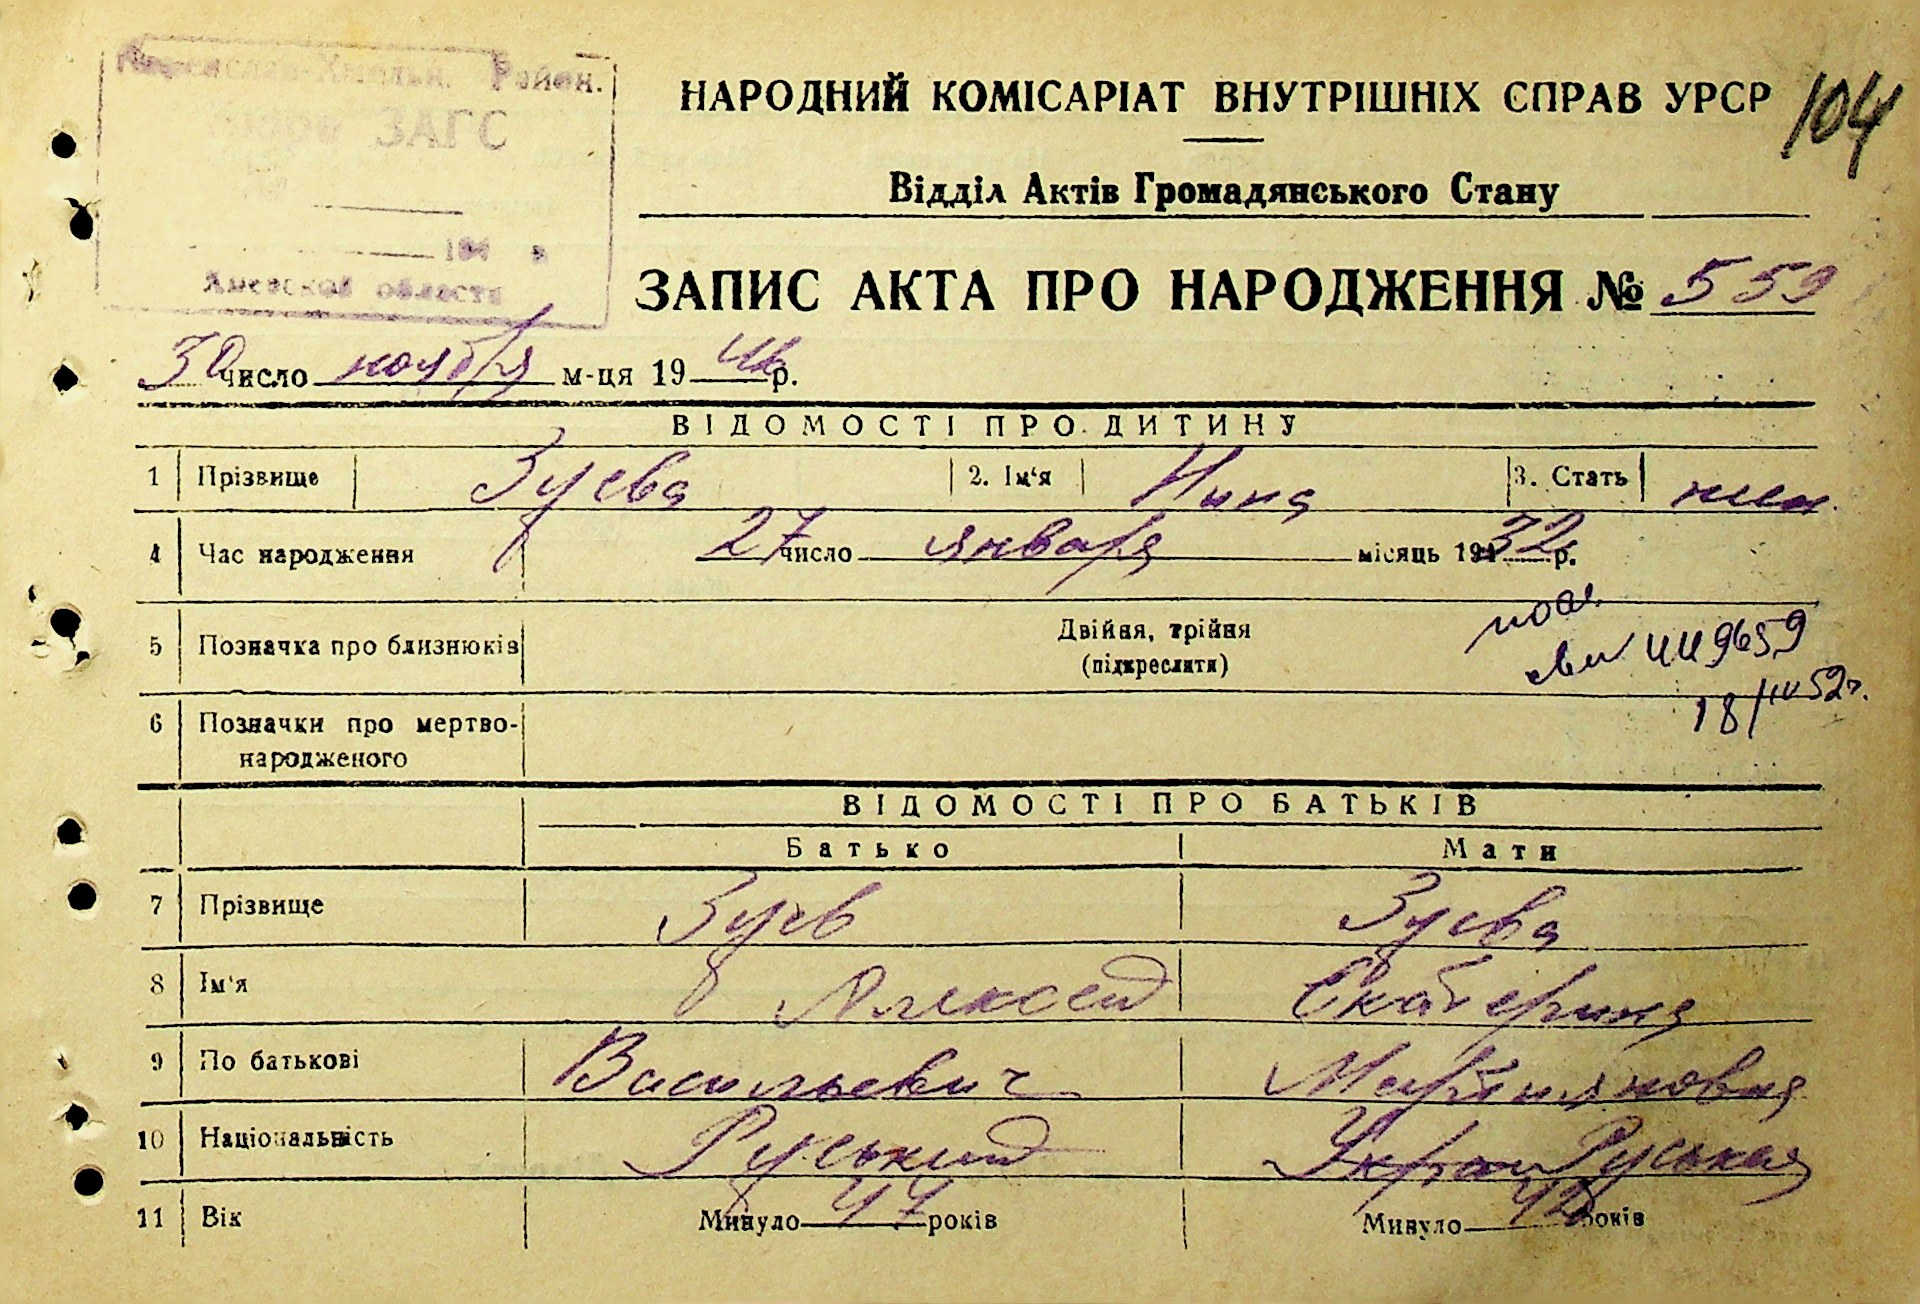 Район.
ЗАГС
194 г.
Киевской области
НАРОДНИЙ КОМІСАРІАТ ВНУТРІШНІХ СПРАВ УРСР 104
Відділ Актів Громадянського Стану
ЗАПИС АКТА ПРО НАРОДЖЕННЯ № 559
30 число ноября м-ця 19 44 р.
ВІДОМОСТІ ПРО ДИТИНУ
1 Прізвище Зуева 2. Ім'я Нина 3. Стать жен.
4 Час народження 27 число января місяць 1932 р.
5 Позначка про близнюків Двійня, трійня
(підкреслити)
9659
18/IV 52г.
6 Позначки про мертво-
народженого
ВІДОМОСТІ ПРО БАТЬКІВ
Батько Мати
7 Прізвище Зуев Зуева
8 Ім'я Алексей Екатерина
9 По батькові Васильевич Мартияновна
10 Національність Руський Руськая
11 Вік Минуло 47 років Минуло 42 років